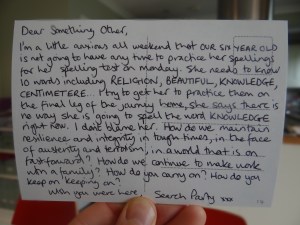 Dear Something Other,
I'm a little anxious all weekend that OUR SIX YEAR OLD
is not going to have any time to practice her spellings
for her spelling test on Monday. She needs to know
10 words including RELIGION, BEAUTIFUL, KNOWLEDGE,
CENTIMETERE... I try to get her to practice them on
the final leg of the journey home, she says there is
no way she is going to spell the word KNOWLEDGE
right now. I don't blame her. How do we maintain
resilience and integrity in tough times, in the face
of austerity and terrorism, in a world that is on...
fast forward? How do we continue to make work
with a family? How do you carry on? How do you
keep on keeping on?
Wish you were here. Search Party xxx